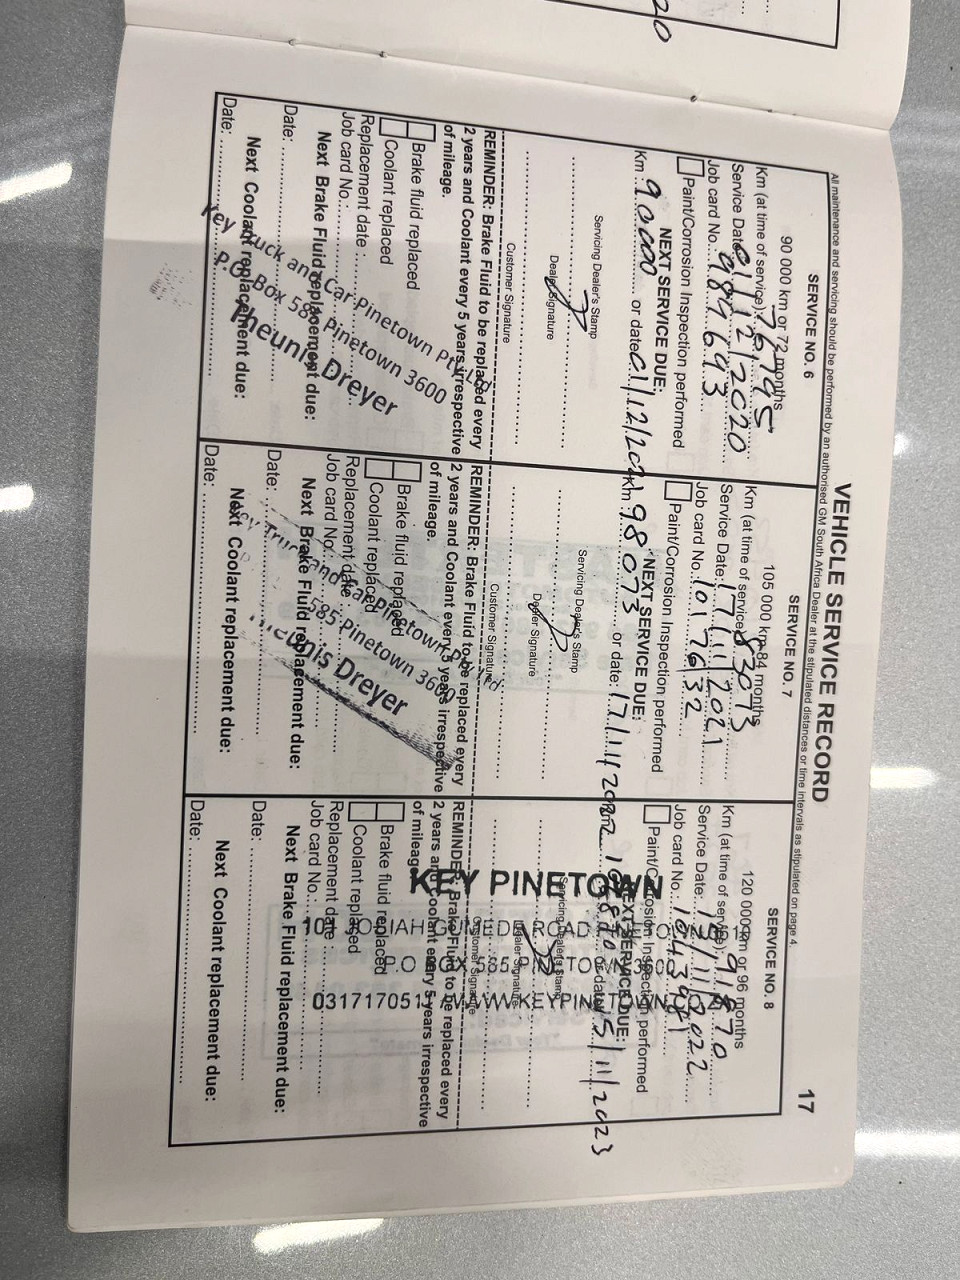 17
VEHICLE SERVICE RECORD
All maintenance and servicing should be performed by an authorised GM South Africa Dealer at the stipulated distances or time intervals as stipulated on page 4.
SERVICE NO. 6
90 000 km or 72 months
Km (at time of service): 76795
Service Date: 01/12/2020
Job card No. 989693
Paint/Corrosion Inspection performed
NEXT SERVICE DUE:
Km: 90000 or date: 01/12/202
Servicing Dealer's Stamp
Dealer Signature
Customer Signature
REMINDER: Brake Fluid to be replaced every
2 years and Coolant every 5 years irrespective
of mileage.
Brake fluid replaced
Coolant replaced
Replacement date:
Job card No.:
Next Brake Fluid replacement due:
Date:
Next Coolant replacement due:
Date:
Key Truck and Car Pinetown Pty Ltd
P.O. Box 585 Pinetown 3600
Theunis Dreyer
SERVICE NO. 7
105 000 km 84 months
Km (at time of service): 83073
Service Date: 17/11/2021
Job card No. 1017632
Paint/Corrosion Inspection performed
NEXT SERVICE DUE:
Km 98073 or date: 17/11/2022
Servicing Dealer's Stamp
Dealer Signature
Customer Signature
REMINDER: Brake Fluid to be replaced every
2 years and Coolant every 5 years irrespective
of mileage.
Brake fluid replaced
Coolant replaced
Replacement date
Job card No.
Next Brake Fluid replacement due:
Date:
Next Coolant replacement due:
Date:
Key Truck and Car Pinetown Pty Ltd
585 Pinetown 3600
Theunis Dreyer
SERVICE NO. 8
120 000 km or 96 months
Km (at time of service): 91870
Service Date: 15/11/2022
Job card No.: 1043981
Paint/Corrosion Inspection performed
NEXT SERVICE DUE:
or date: 15/11/2023
Servicing Dealer's Stamp
Dealer Signature
Customer Signature
REMINDER: Brake Fluid to be replaced every
2 years and Coolant every 5 years irrespective
of mileage.
Brake fluid replaced
Coolant replaced
Replacement date:
Job card No.:
Next Brake Fluid replacement due:
Date:
Next Coolant replacement due:
Date:
KEY PINETOWN
JOSIAH GUMEDE ROAD
P.O BOX 585 PINETOWN 3600
WWW.KEYPINETOWN